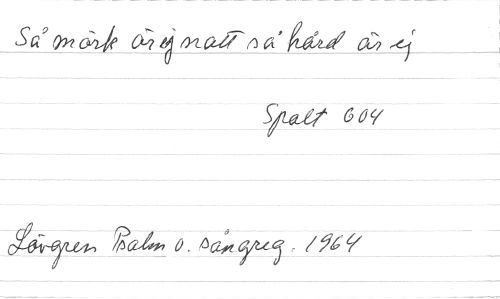 Så mörk är ej natt så hård är ej
Spalt 604
Lövgren Psalm o. sångreg. 1964